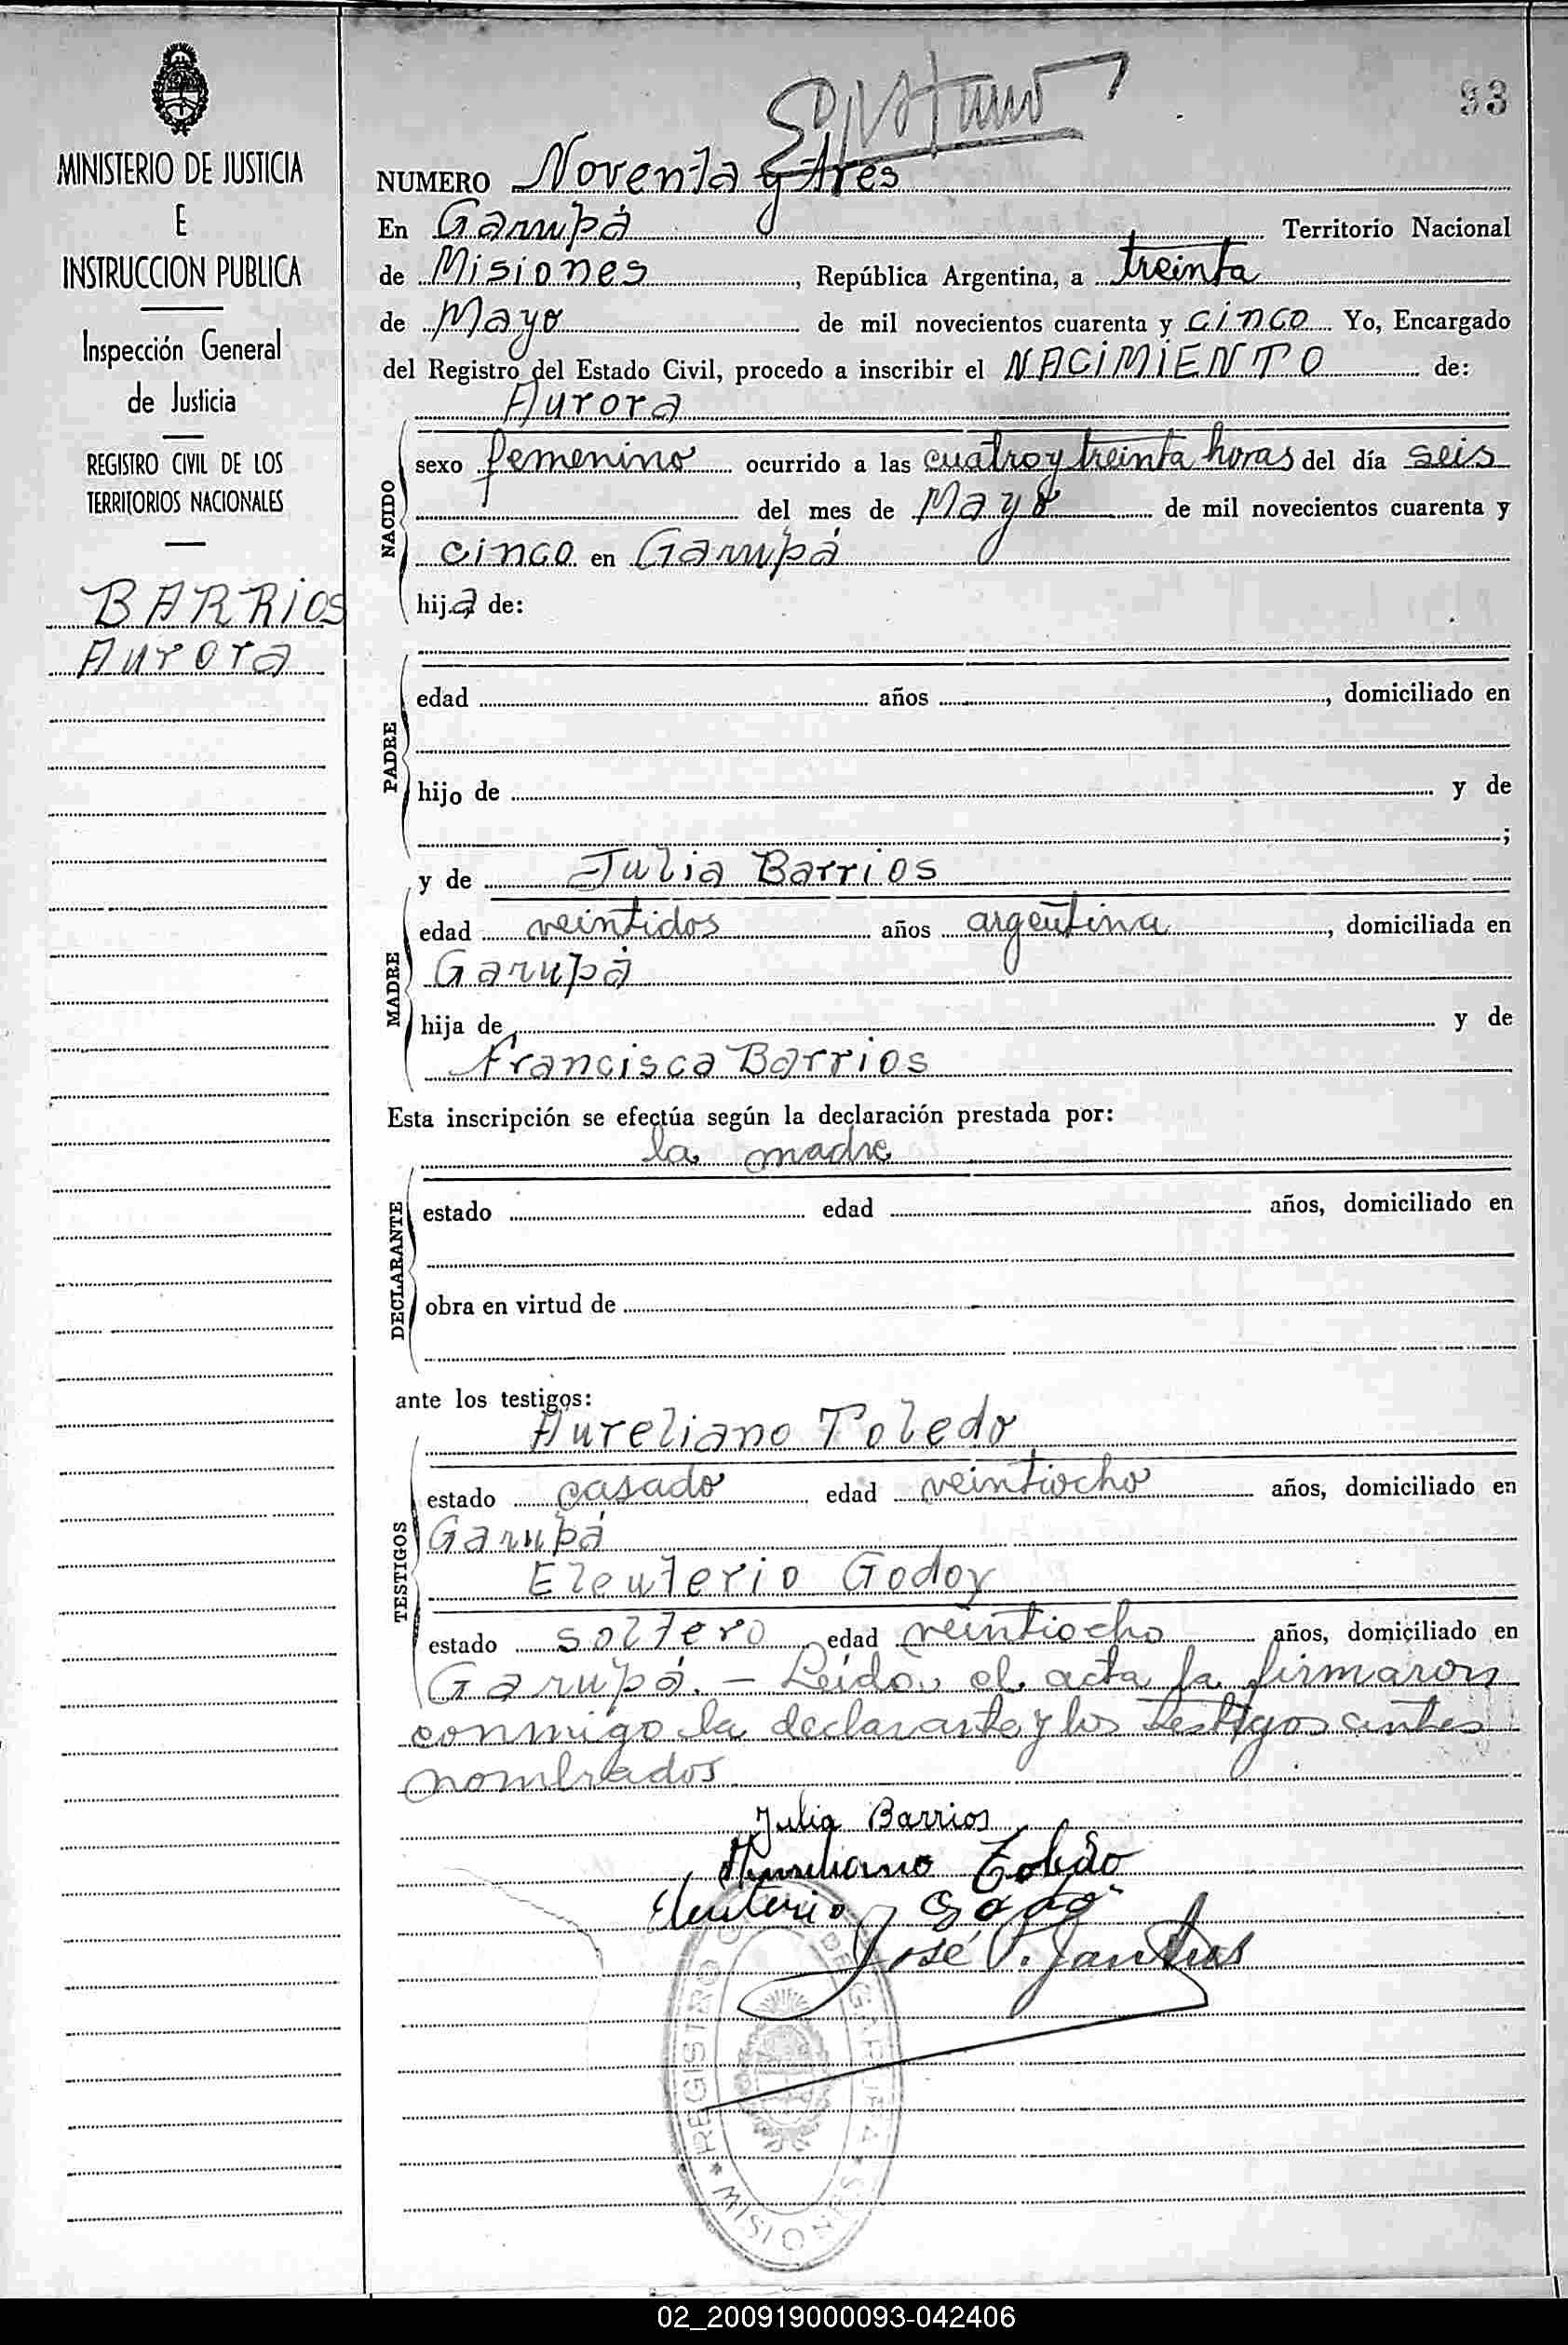 93
MINISTERIO DE JUSTICIA
E
INSTRUCCION PUBLICA
Inspección General
de Justicia
REGISTRO CIVIL DE LOS
TERRITORIOS NACIONALES
BARRIOS
Aurora
NUMERO Noventa y tres
En Garupá Territorio Nacional
de Misiones, República Argentina, a treinta
de Mayo de mil novecientos cuarenta y cinco Yo, Encargado
del Registro del Estado Civil, procedo a inscribir el NACIMIENTO de:
Aurora
NACIDO
sexo femenino ocurrido a las cuatro y treinta horas del día seis
del mes de Mayo de mil novecientos cuarenta y
cinco en Garupá
hija de:
PADRE
edad años, domiciliado en
hijo de y de
;
y de Julia Barrios
MADRE
edad veintidos años argentina, domiciliada en
Garupá
hija de y de
Francisca Barrios
Esta inscripción se efectúa según la declaración prestada por:
la madre
DECLARANTE
estado edad años, domiciliado en
obra en virtud de
ante los testigos:
Aureliano Toledo
TESTIGOS
estado casado edad veintiocho años, domiciliado en
Garupá
Eleuterio Godoy
estado soltero edad veintiocho años, domiciliado en
Garupá. — Leido el acta la firmaron
conmigo la declarante y los testigos antes
nombrados
Julia Barrios
Aureliano Toledo
Eleuterio Godoy
José P.
REGISTRO DE GARUPA
MISIONES
02_200919000093-042406